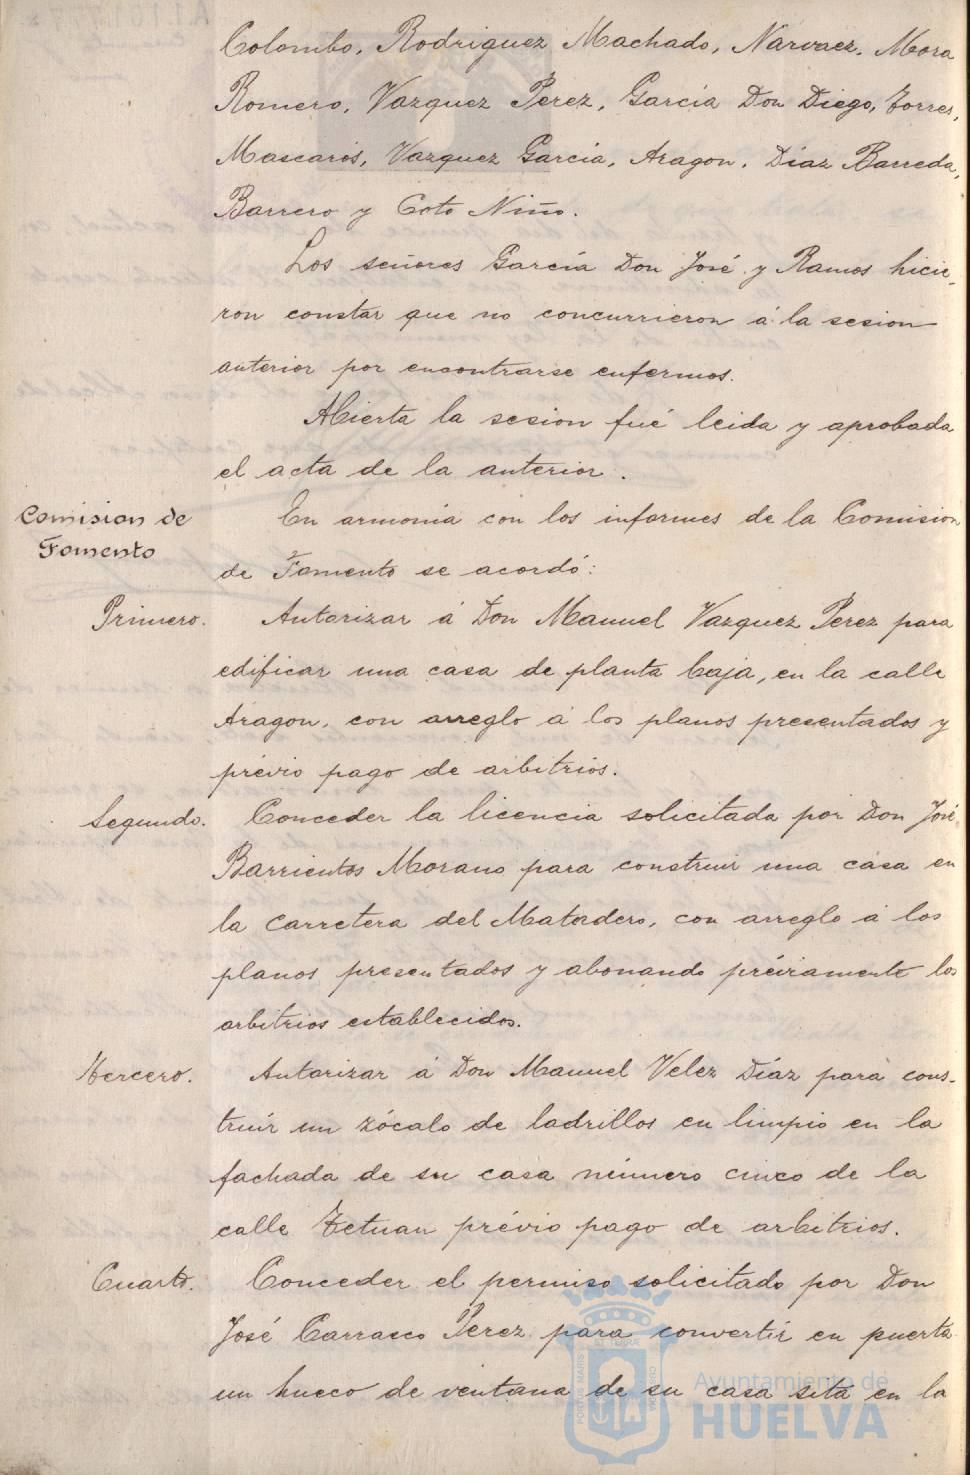 Colombo, Rodriguez Machado, Narvaez, Mora
Romero, Vazquez Perez, García Don Diego, Torres,
Mascarós, Vazquez García, Aragon, Díaz Barreda,
Barrero y Coto Niño.
Los señores García Don José y Ramos hicie-
ron constar que no concurrieron á la sesion
anterior por encontrarse enfermos.
Abierta la sesion fué leida y aprobada
el acta de la anterior.
Comision de
Fomento
En armonía con los informes de la Comision
de Fomento se acordó:
Primero. Autorizar á Don Manuel Vazquez Perez para
edificar una casa de planta baja, en la calle
Aragon, con arreglo á los planos presentados y
prévio pago de arbitrios.
Segundo. Conceder la licencia solicitada por Don José
Barrientos Morano para construir una casa en
la carretera del Matadero, con arreglo á los
planos presentados y abonando préviamente los
arbitrios establecidos.
Tercero. Autorizar á Don Manuel Velez Díaz para cons-
truír un zócalo de ladrillos en limpio en la
fachada de su casa número cinco de la
calle Tetuan prévio pago de arbitrios.
Cuarto. Conceder el permiso solicitado por Don
José Carrasco Perez para convertir en puerta
un hueco de ventana de su casa sita en la
Ayuntamiento de
HUELVA